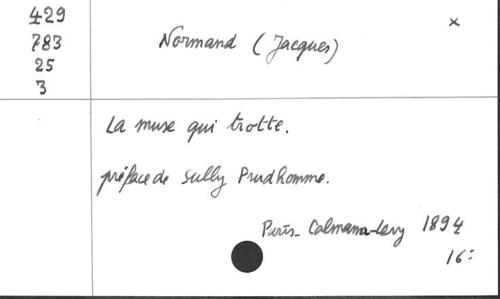 429
783
25
3
Normand (Jacques)
x
La muse qui trotte.
préface de Sully Prudhomme.
Paris_ Calmann-Levy 1894
16: